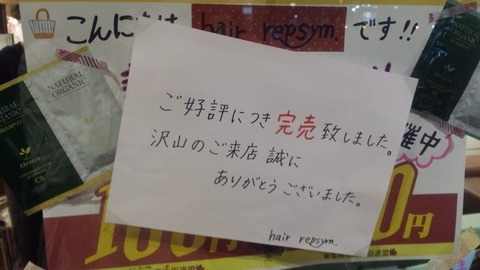 こんにちは hair repsym. です!!
NATURAL
ORGANIC
ご好評につき完売致しました。
沢山のご来店 誠に
ありがとうございました。
hair repsym.
催中
円